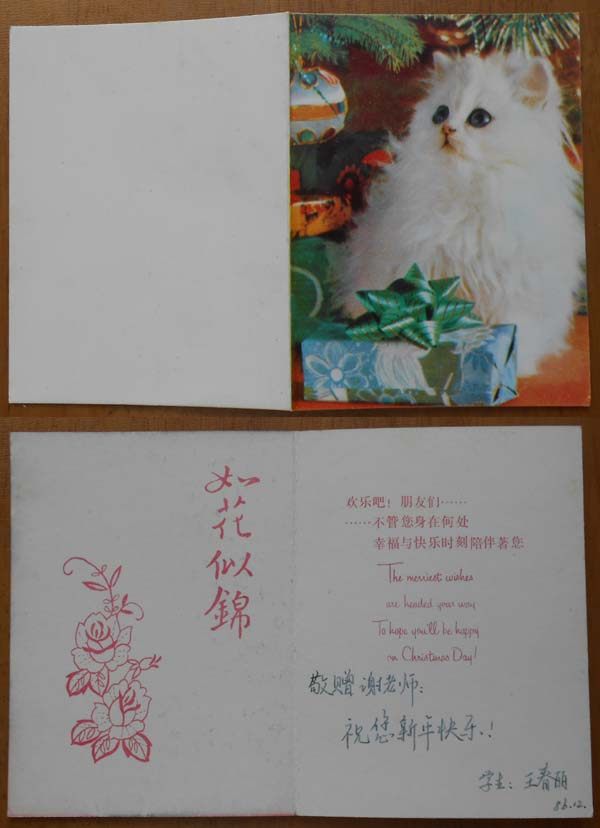 如花似錦
欢乐吧！朋友们……
……不管您身在何处
幸福与快乐时刻陪伴著您
The merriest wishes
are headed your way
To hope you'll be happy
on Christmas Day!
敬赠谢老师：
祝您新年快乐！
学生：王春丽
86.12.